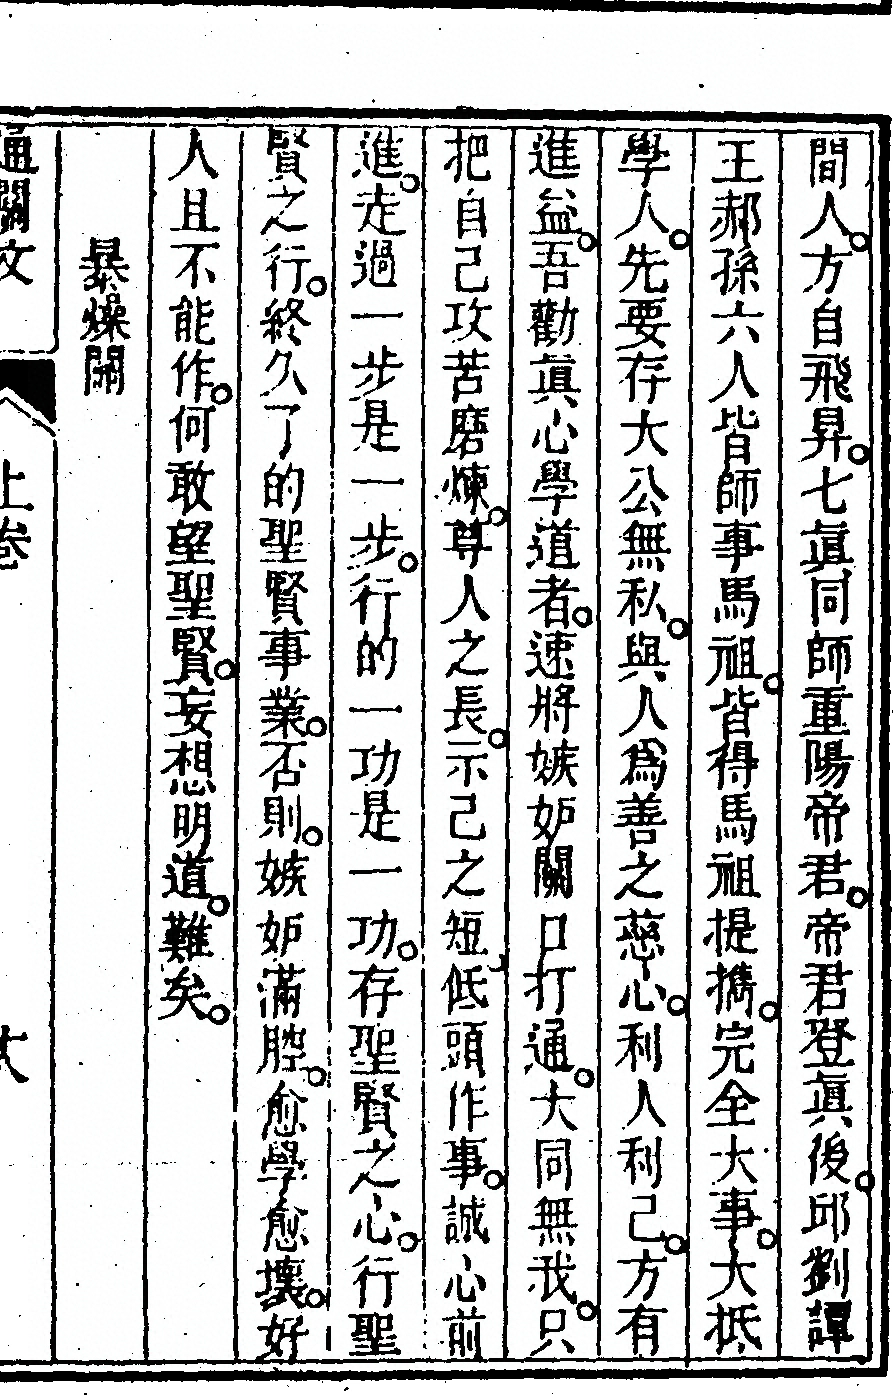 間人。方自飛昇。七眞同師重陽帝君。帝君登眞後。邱劉譚
王郝孫六人皆師事馬祖。皆得馬祖提攜。完全大事。大抵
學人。先要存大公無私。與人爲善之慈心。利人利己。方有
進益。吾勸眞心學道者。速將嫉妒關口打通。大同無我。只
把自己攻苦磨煉。尊人之長。示己之短。低頭作事。誠心前
進。走過一步是一步。行的一功是一功。存聖賢之心。行聖
賢之行。終久了的聖賢事業。否則。嫉妒滿腔。愈學愈壞。好
人且不能作。何敢望聖賢。妄想明道。難矣。
暴燥關
通關文
上卷